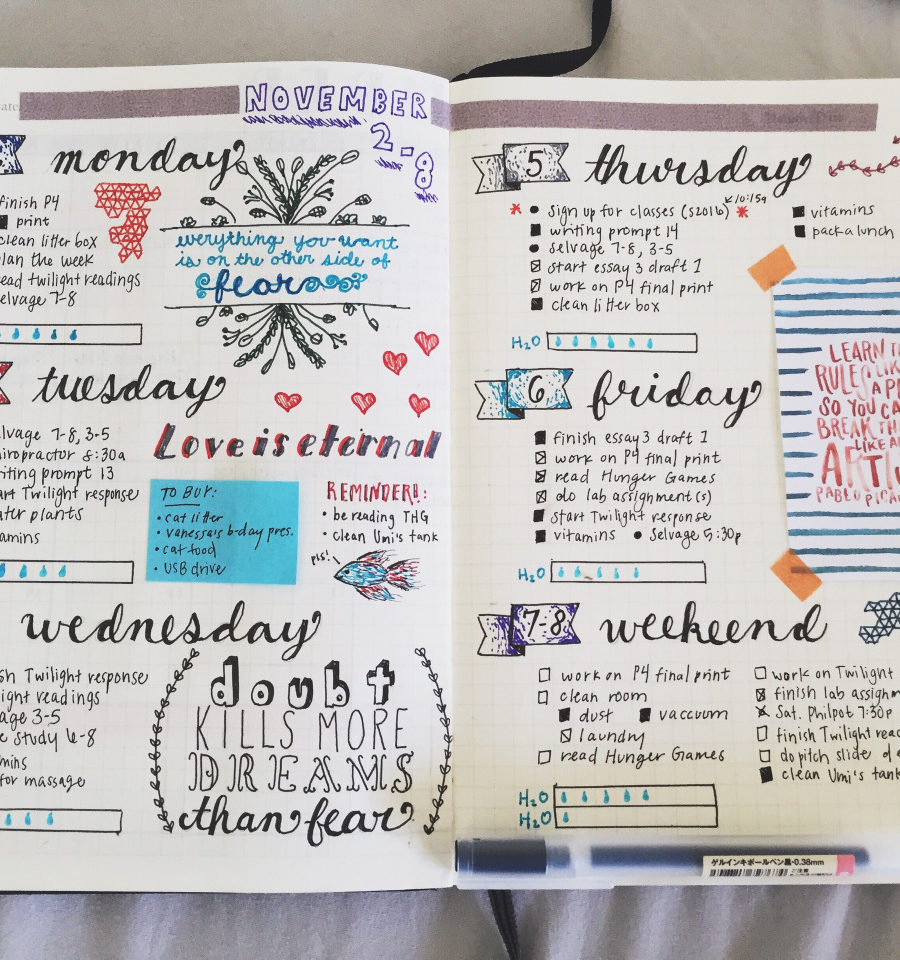 NOVEMBER
2-8
monday
finish P4
print
clean litter box
plan the week
read twilight readings
selvage 7-8
everything you want
is on the other side of
fear
tuesday
selvage 7-8, 3-5
chiropractor 8:30a
writing prompt 13
start Twilight response
water plants
vitamins
Love is eternal
TO BUY:
• cat litter
• vanessa's b-day pres.
• cat food
• USB drive
REMINDER!:
• be reading THG
• clean Umi's tank
pls!
wednesday
Twilight response
readings
3-5
study 6-8
for massage
doubt
KILLS MORE
DREAMS
than fear
5 thursday
• sign up for classes (s2016) 10:15a
writing prompt 14
• selvage 7-8, 3-5
start essay 3 draft 1
work on P4 final print
clean litter box
vitamins
pack a lunch
H2O
LEARN
RULES LIKE
A
SO YOU
BREAK
LIKE
PABLO
6 friday
finish essay 3 draft 1
work on P4 final print
read Hunger Games
do lab assignment(s)
start Twilight response
vitamins • Selvage 5:30p
H2O
7-8 weekeend
work on P4 final print
clean room
dust vaccuum
laundry
read Hunger Games
work on Twilight
finish lab
Sat. Philpot 7:30p
finish Twilight
do pitch slide
clean Umi's tank
H2O
H2O
ゲルインキボールペン黒・0.38mm